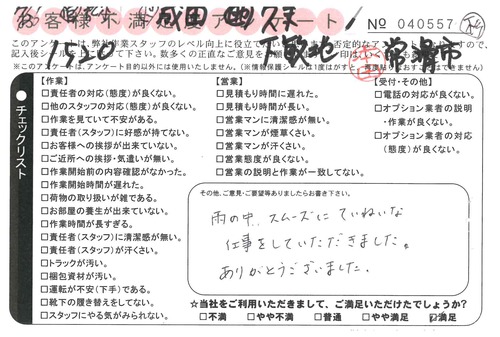 お客様不満足度アンケート
No 040557
このアンケートは、弊社作業スタッフのレベル向上に役立て
※このアンケートは、アンケート目的以外には使用いたしません。
チェックリスト
【作業】
□責任者の対応(態度)が良くない。
□他のスタッフの対応(態度)が良くない。
□作業を見ていて不安がある。
□責任者(スタッフ)に好感が持てない。
□お客様への挨拶が出来ていない。
□ご近所への挨拶・気遣いが無い。
□作業開始前の内容確認がなかった。
□作業開始時間が遅れた。
□荷物の取り扱いが雑である。
□お部屋の養生が出来ていない。
□作業時間が長すぎる。
□責任者(スタッフ)に清潔感が無い。
□責任者(スタッフ)が汗くさい。
□トラックが汚い。
□梱包資材が汚い。
□運転が不安(下手)である。
□靴下の履き替えをしてない。
□スタッフにやる気がみられない。
【営業】
□見積もり時間に遅れた。
□見積もり時間が長い。
□営業マンに清潔感が無い。
□営業マンが煙草くさい。
□営業マンが汗くさい。
□営業態度が良くない。
□営業の説明と作業が一致してない。
【受付・その他】
□電話の対応が良くない。
□オプション業者の説明
・作業が良くない。
□オプション業者の対応
(態度)が良くない。
その他、ご意見・ご要望等ありましたらお書き下さい。
雨の中、スムーズにていねいな
仕事をしていただきました。
ありがとうございました。
☆当社をご利用いただきまして、ご満足いただけたでしょうか?
□不満 □やや不満 □普通 □やや満足 ☑満足